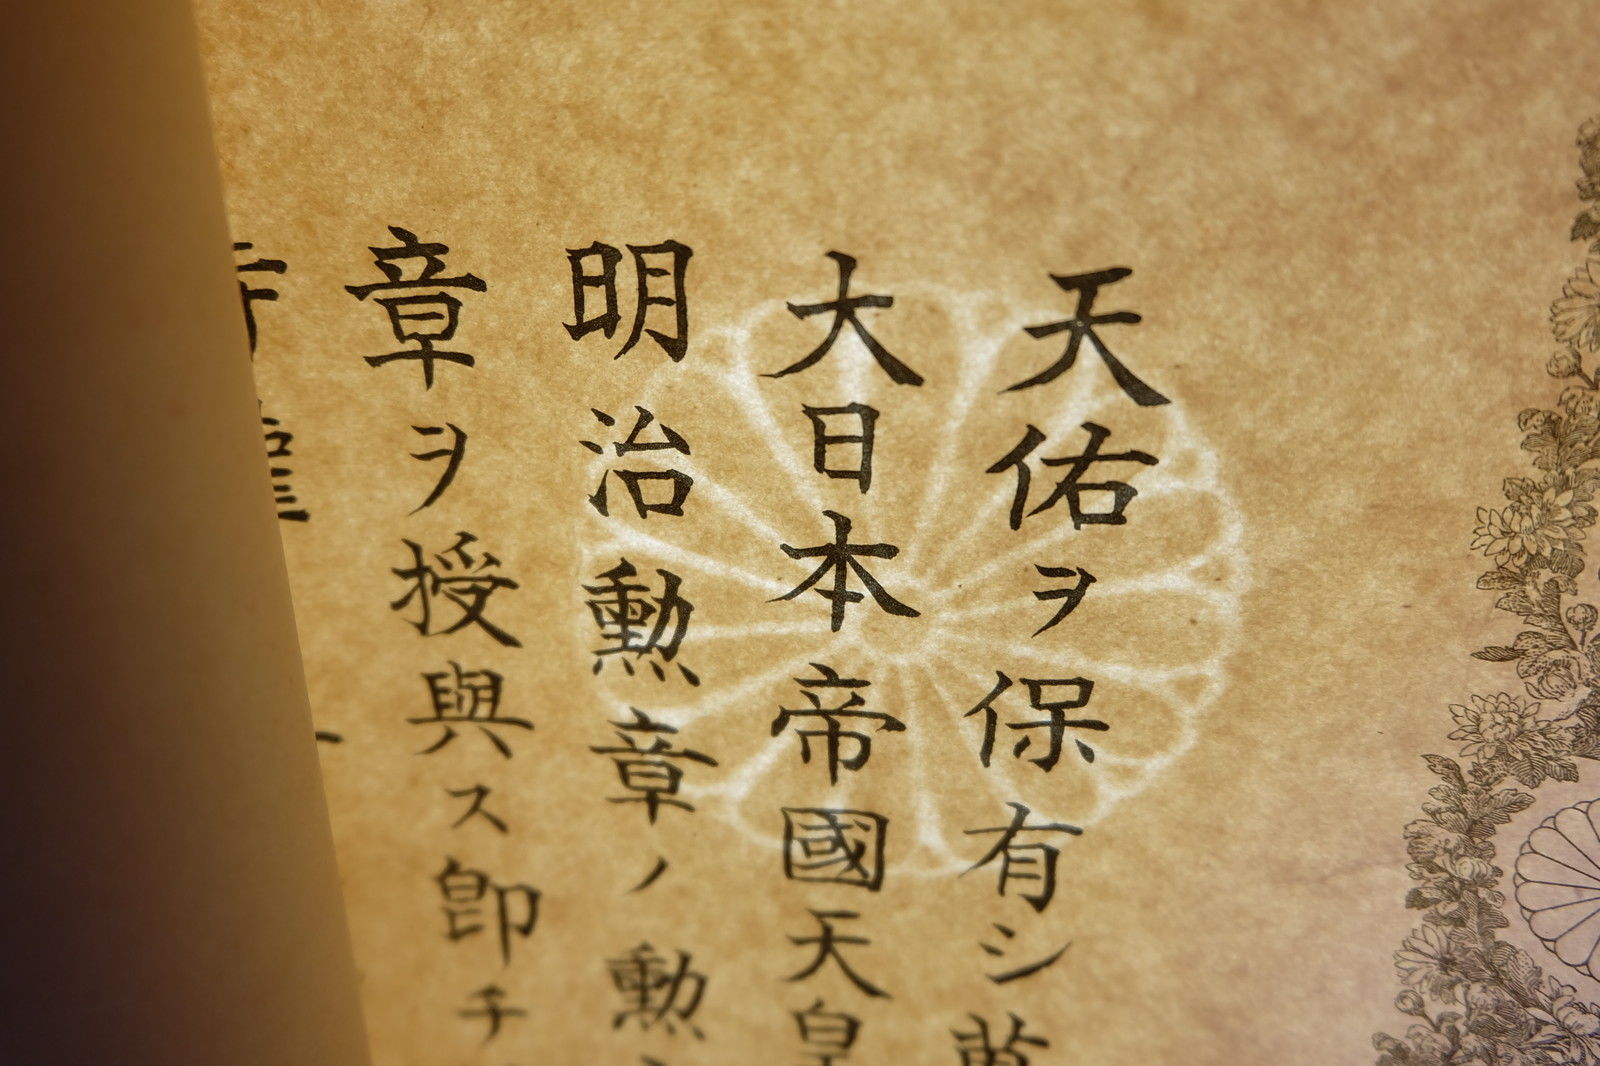 天佑ヲ保有シ
大日本帝國天皇
明治勳章ノ勳
章ヲ授與ス卽チ